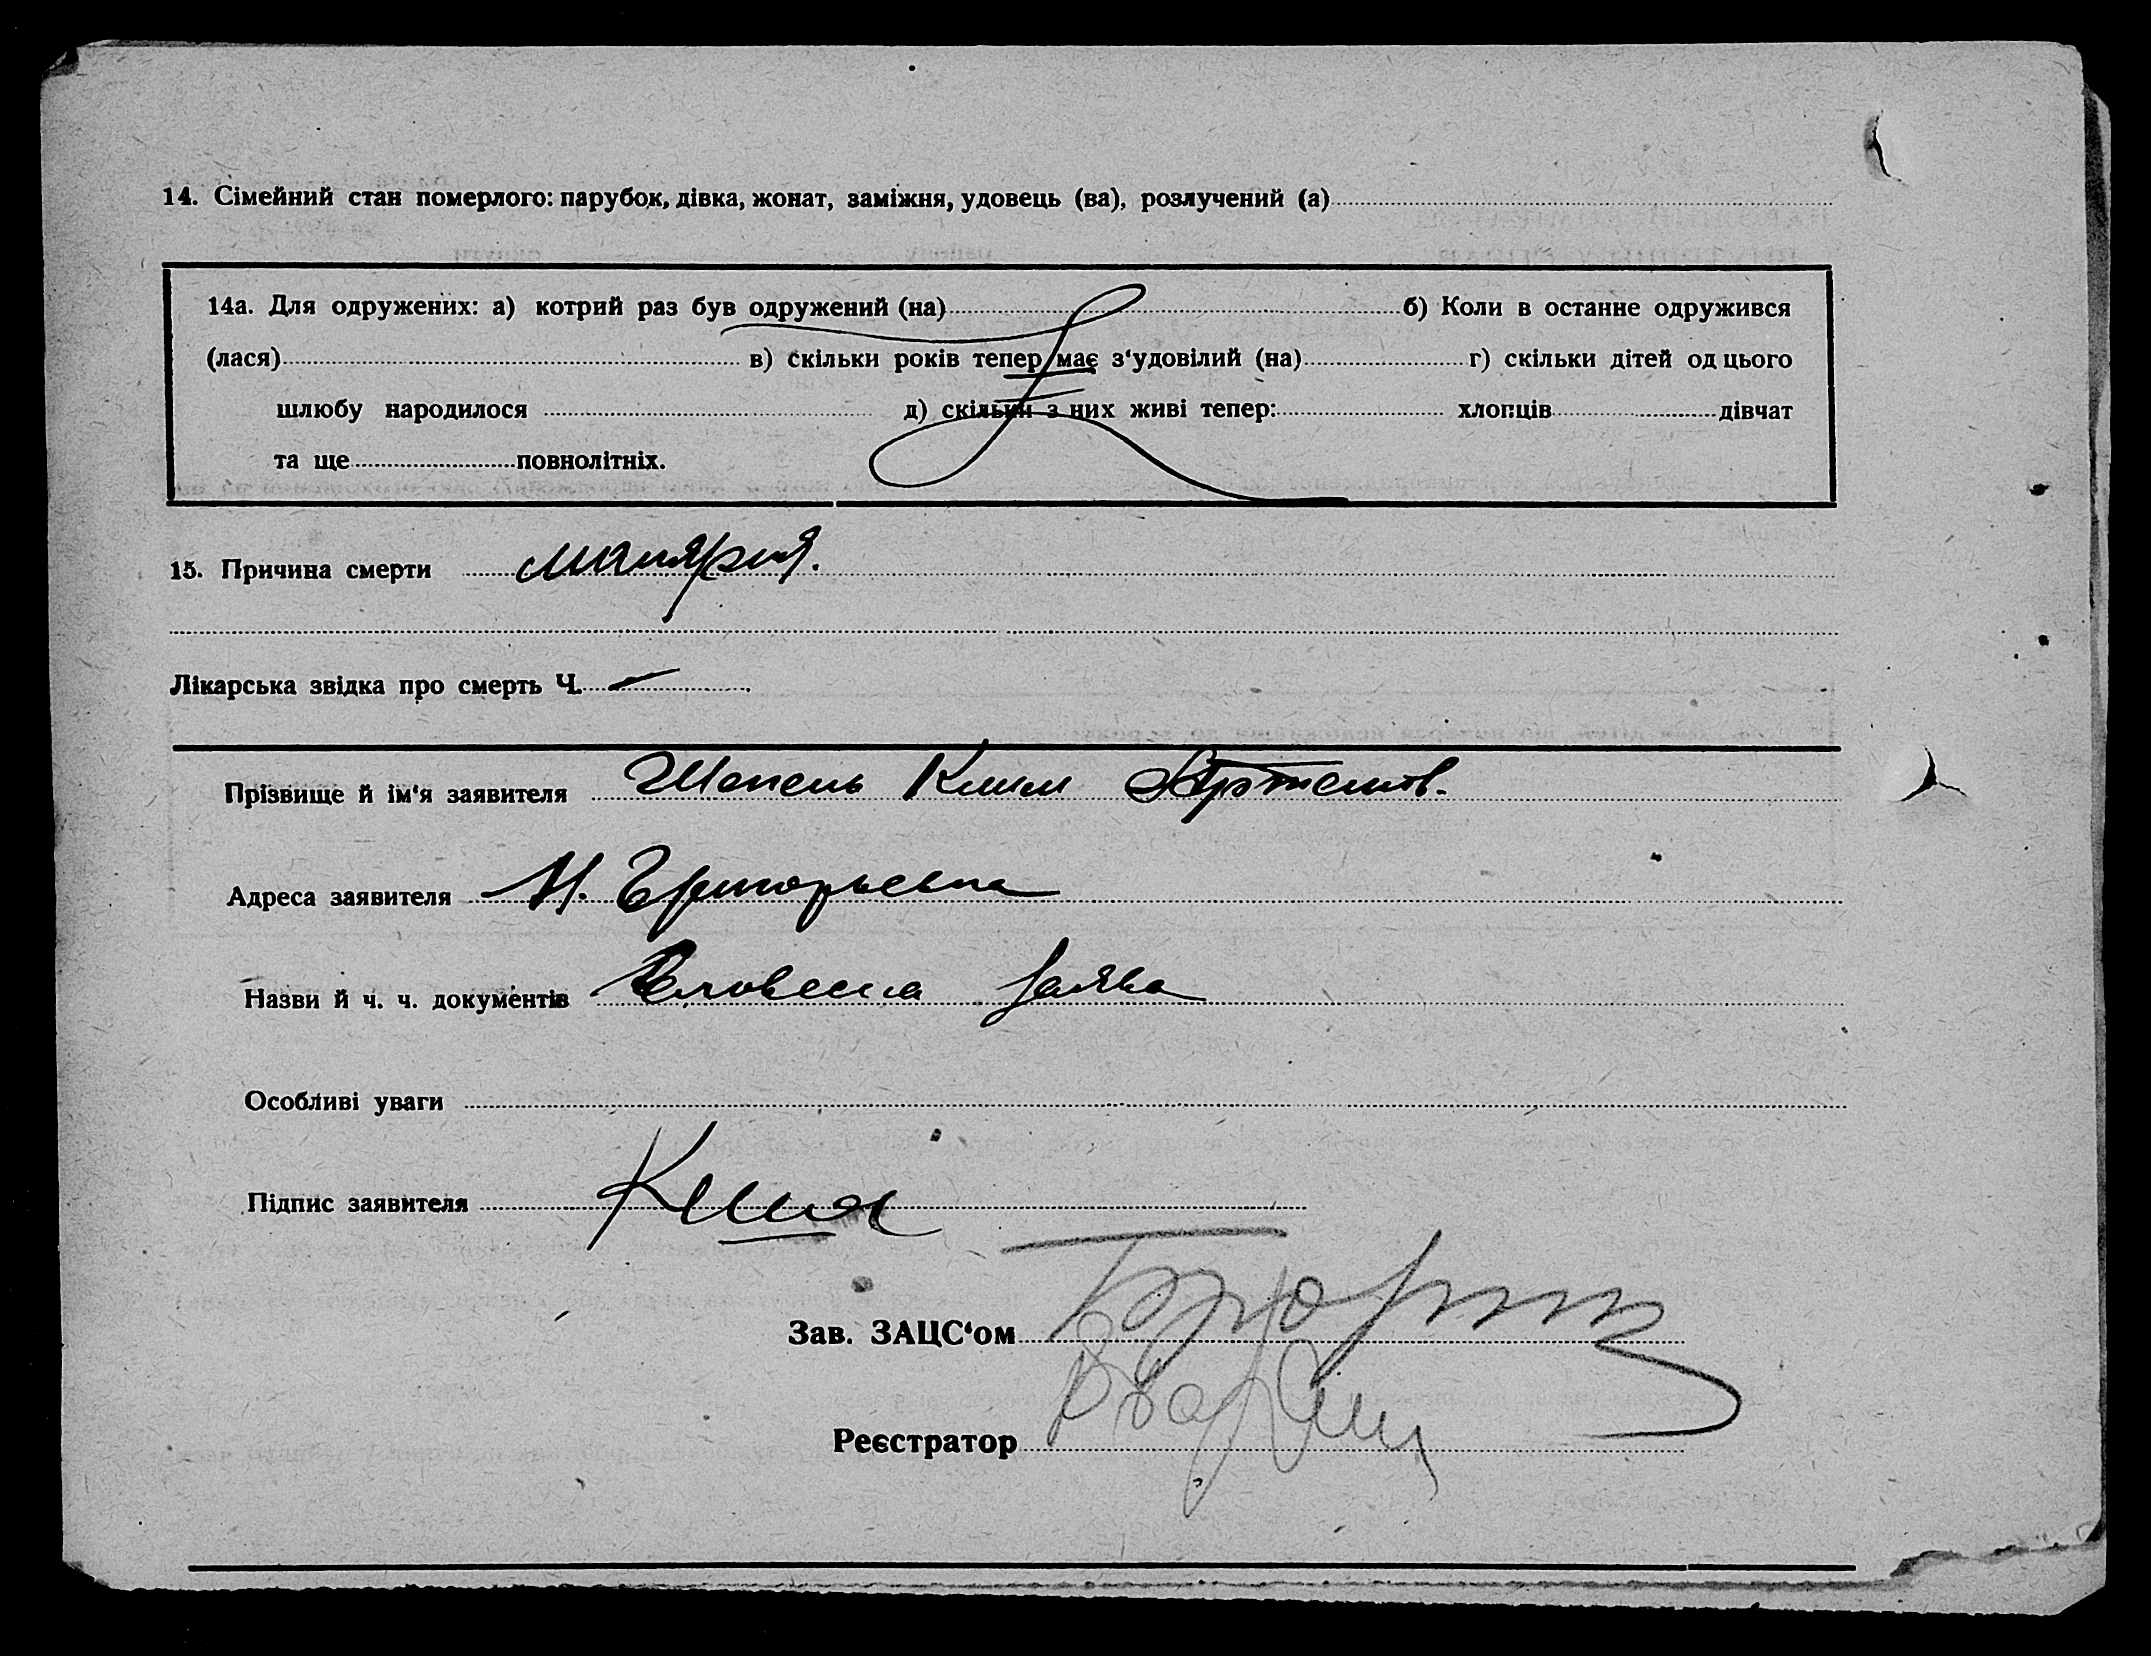 14. Сімейний стан померлого: парубок, дівка, жонат, заміжня, удовець (ва), розлучений (а)
14а. Для одружених: а) котрий раз був одружений (на) б) Коли в останне одружився
(лася) в) скільки років тепер має з‘удовілий (на) г) скільки дітей од цього
шлюбу народилося д) скільки з них живі тепер: хлопців дівчат
та ще повнолітніх.
15. Причина смерти малярия.
Лікарська звідка про смерть Ч. –
Прізвище й ім‘я заявителя Шепель Клим Артемов.
Адреса заявителя Н. Григорьевка
Назви й ч. ч. документів Словесна заява
Особливі уваги
Підпис заявителя
Зав. ЗАЦС‘ом
Реєстратор